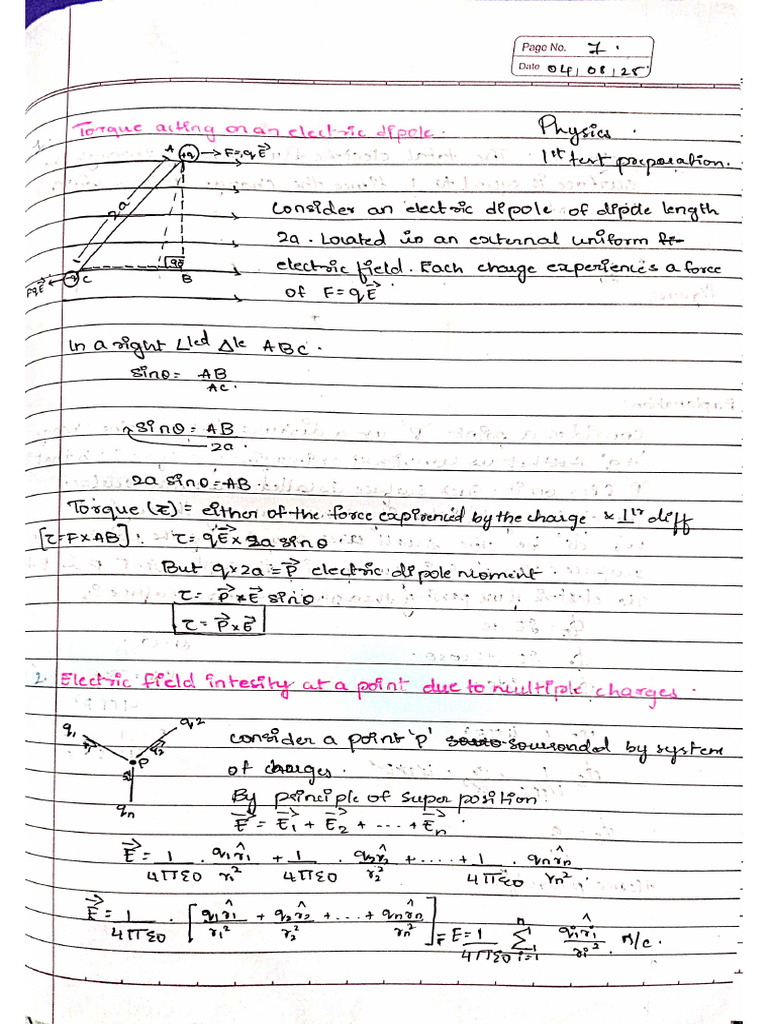 Page No. 7.
Date 04/08/25
Torque acting on an electric dipole.
Physics.
1st test preparation.
A +q → F=qE⃗
2a
FqE⃗ ← -q C
90
B
Consider an electric dipole of dipole length
2a. Located in an external uniform
electric field. Each charge experiences a force
of F=qE⃗
In a right ∠led Δle ABC.
sinθ = AB/AC.
sinθ = AB/2a.
2a sinθ = AB
Torque (τ) = either of the force expirenced by the charge × ⊥lr diff
[τ=F×AB]. τ = qE⃗ × 2a sinθ.
But q×2a = P⃗ electric dipole moment
τ = P⃗×E⃗ sinθ.
τ = P⃗×E⃗
2. Electric field intesity at a point due to multiple charges.
q1 q2
r1 r2
P
qn
Consider a point 'p' sourounded by system
of charges.
By principle of super position.
E⃗ = E⃗1 + E⃗2 + ... + E⃗n
E⃗ = 1/4πε0 . q1r̂1/r1² + 1/4πε0 . q2r̂2/r2² + ..... + 1/4πε0 . qnr̂n/rn²
E⃗ = 1/4πε0 . [q1r̂1/r1² + q2r̂2/r2² + ... + qnr̂n/rn²] = E = 1/4πε0 n∑i=1 qir̂i/ri² . N/C.